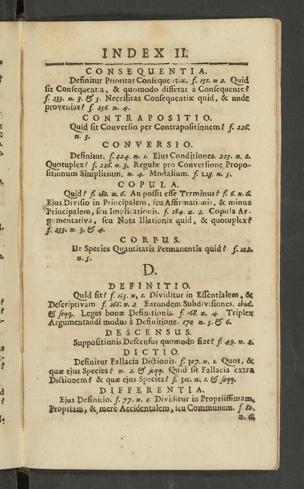 INDEX II.
CONSEQUENTIA.
Definitur Prioritas Consequentiæ, f. 131. n 2. Quid
sit Consequentia, & quomodo differat à Consequente?
f. 233. n. 3. & 5. Necessitas Consequentiæ quid, & unde
proveniat? f. 236. n. 4.
CONTRAPOSITIO.
Quid sit Conversio per Contrapositionem? f. 226.
n. 3.
CONVERSIO.
Definitur. f. 224. n. 2. Ejus Conditiones. 225. n. 2.
Quotuplex? f. 226. n. 3. Regulæ pro Conversione Propo-
sitionum Simplicium. n. 4. Modalium. f. 245. n. 5.
COPULA.
Quid? f. 182. n. 6. An possit esse Terminus? f. 6. n. 6.
Ejus Divisio in Principalem, seu Affirmationis, & minus
Principalem, seu Implicationis. f. 184. n. 2. Copula Ar-
gumentativa, seu Nota Illationis quid, & quotuplex?
f. 233. n. 3. & 4.
CORPUS.
Ut Species Quantitatis Permanentis quid? f. 102.
n. 5.
D.
DEFINITIO.
Quid sit? f. 165. n. 1. Dividitur in Essentialem, &
Descriptivam f. 166. n. 2. Earundem Subdivisiones. ibid.
& seqq. Leges bonæ Definitionis. f. 168. n. 4. Triplex
Argumentandi modus à Definitione. 170 n. 5. & 6.
DESCENSUS.
Suppositionis Descensus quomodo fiat? f. 49. n. 4.
DICTIO.
Definitur Fallacia Dictionis. f. 307. n. 1. Quot, &
quæ ejus Species? n. 2. & seqq. Quid sit Fallacia extra
Dictionem? & quæ ejus Species? f. 311. n. 1. & seqq.
DIFFERENTIA.
Ejus Definitio. f. 77. n. 1. Dividitur in Propriissimam,
Propriam, & merè Accidentalem, seu Communem. f. 80.
n. 6.